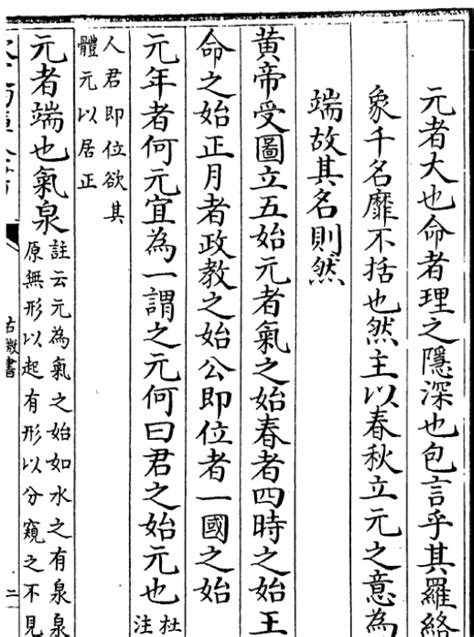 元者大也命者理之隱深也包言乎其羅絡
象千名靡不括也然主以春秋立元之意為
端故其名則然
黄帝受圖立五始元者氣之始春者四時之始王
命之始正月者政教之始公即位者一國之始
元年者何元宜為一謂之元何曰君之始元也
杜
注
人君即位欲其
體元以居正
元者端也氣泉
註云元為氣之始如水之有泉泉
原無形以起有形以分窺之不見
古微書
二